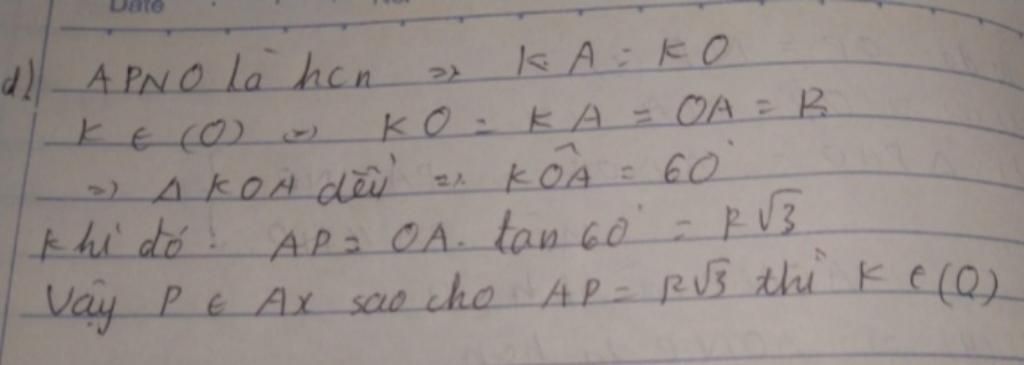 Date
d) APNO là hcn => KA = KO
K ∈ (O) => KO = KA = OA = R
=> Δ KOA đều => KÔA = 60°
Khi đó: AP = OA. tan 60° = R√3
Vậy P ∈ Ax sao cho AP = R√3 thì K ∈ (O)